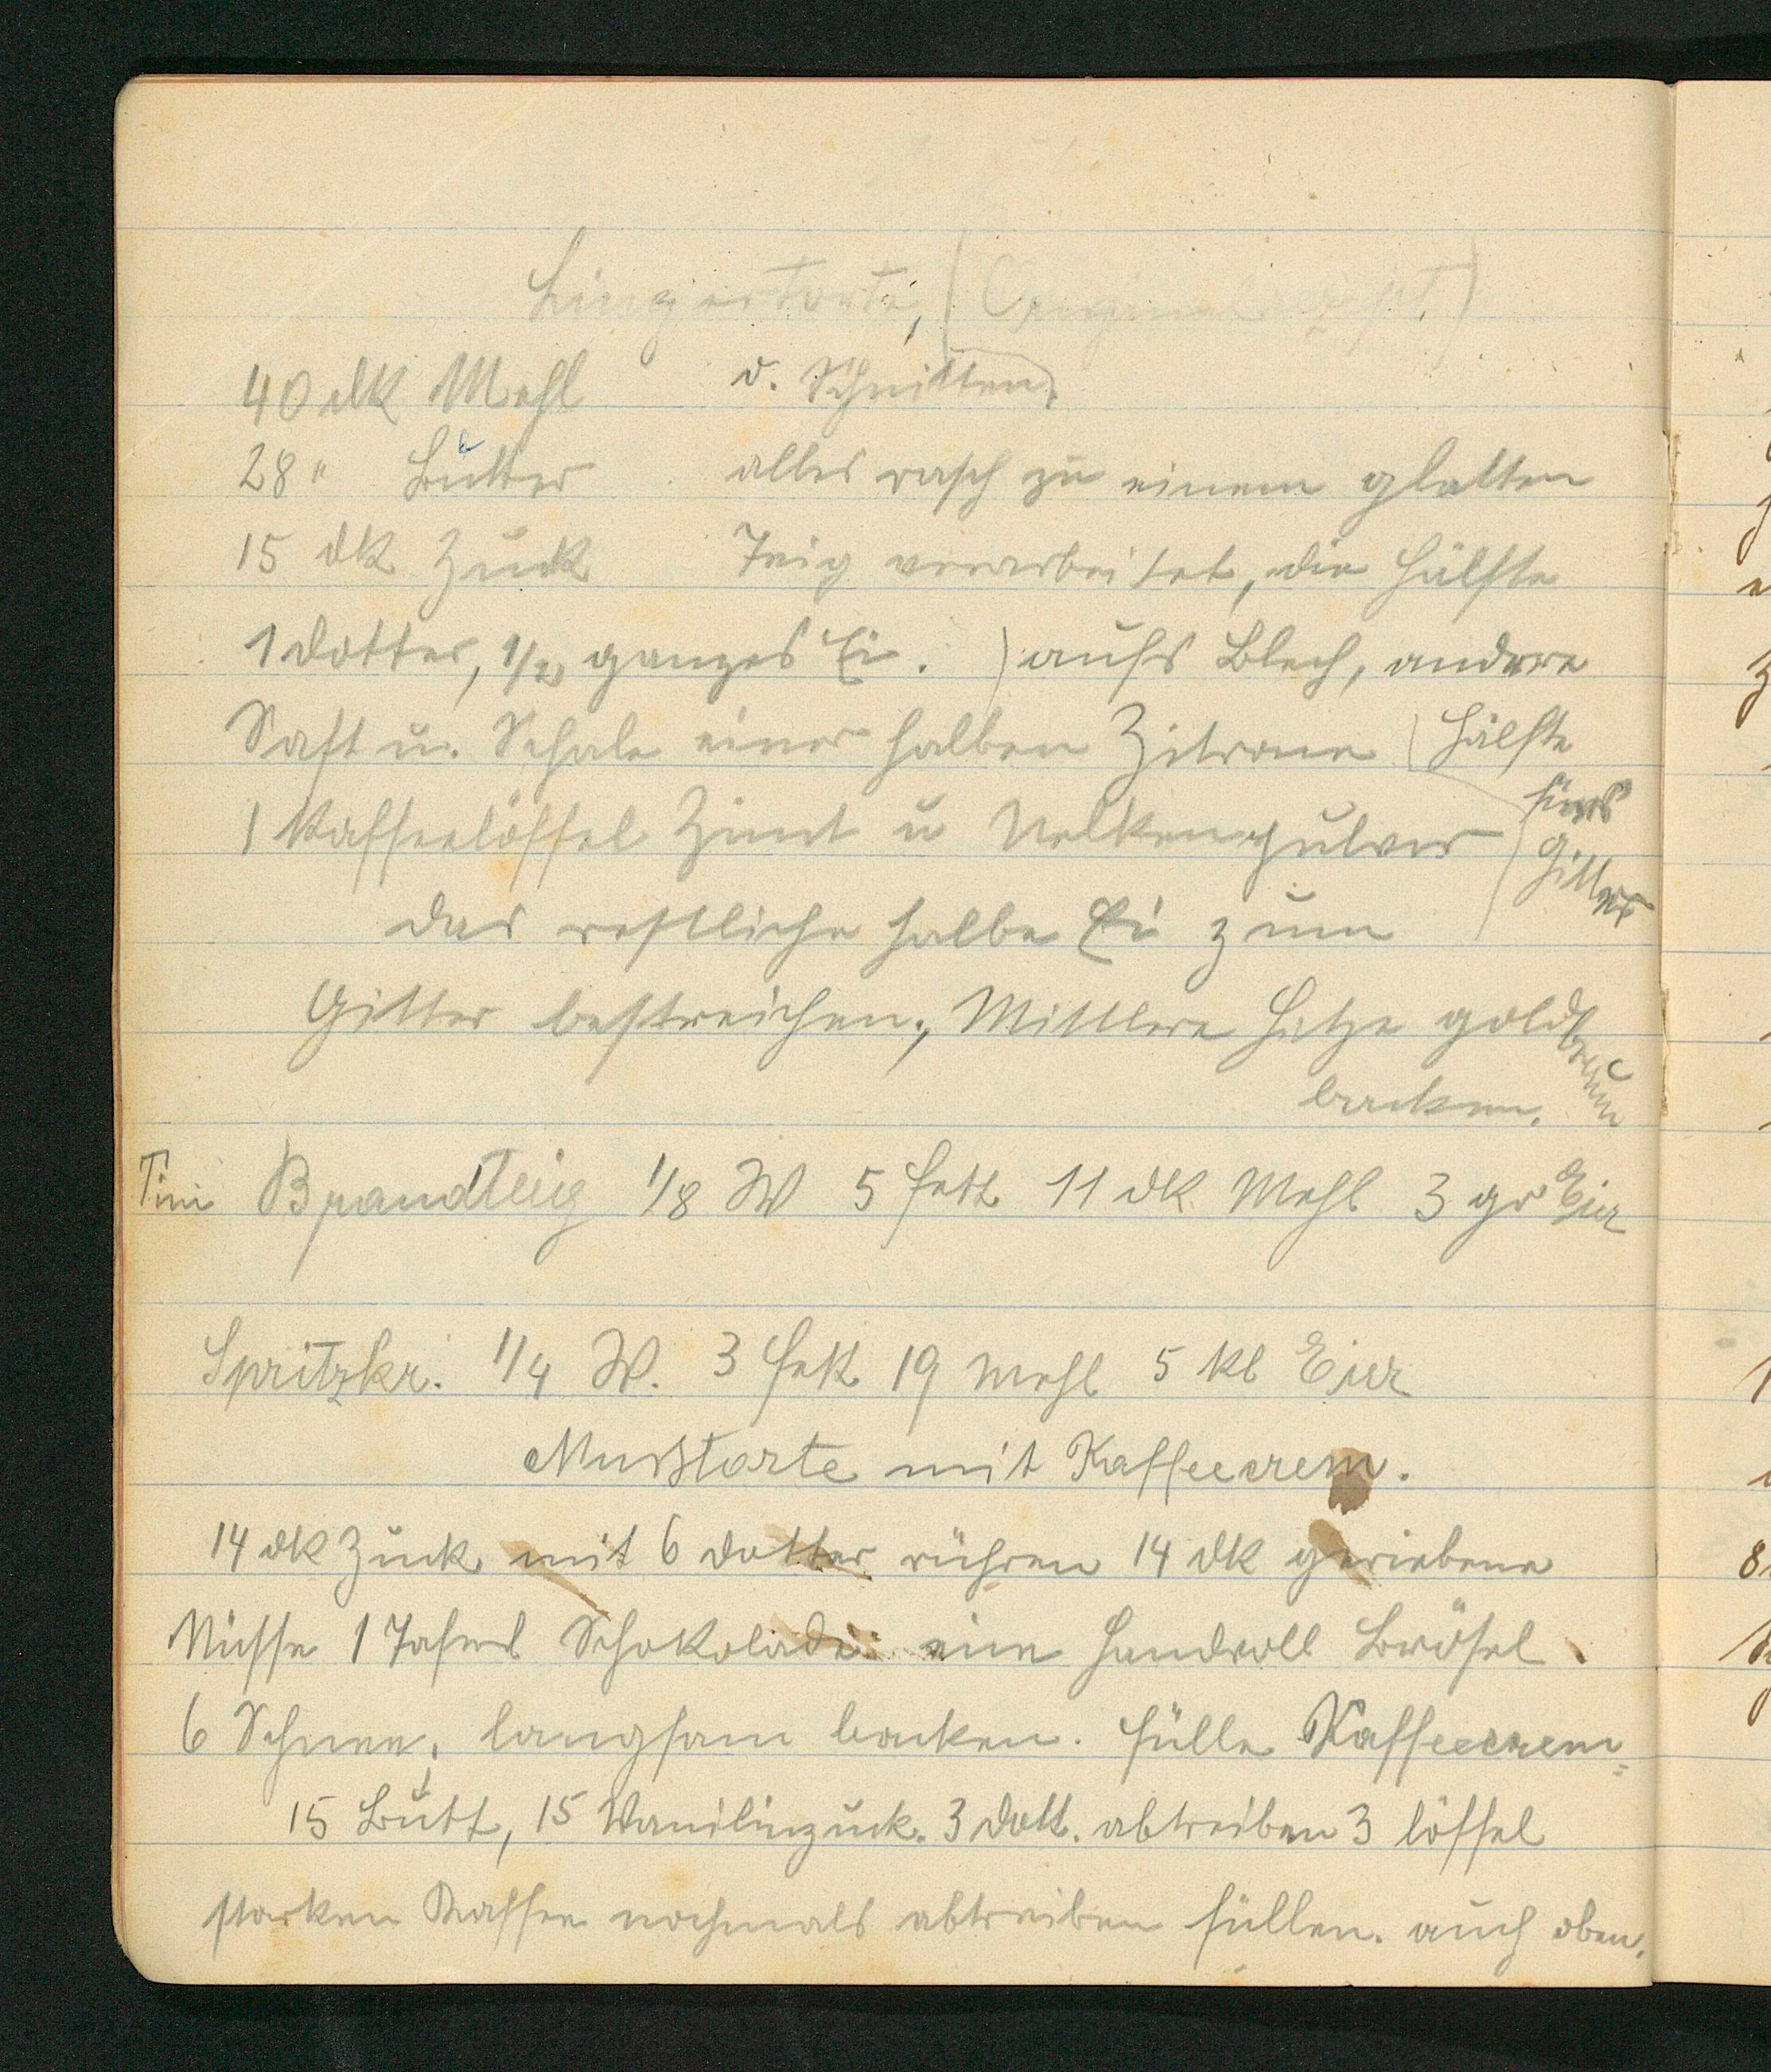 Linzertorte, (Originalrezept)
o. Schnitten.
40 dk Mehl
28 " Butter
alles rasch zu einem glatten
15 dk Zuck
Teig verarbeitet, die Hälfte
1 Dotter, 1/2 ganzes Ei. ) aufs Blech, andere
Saft u. Schale einer halben Zitrone ( Hälfte
1 Kaffeelöffel Zimt u Nelkenpulver ( fürs
Gitter
das restliche halbe Ei zum
Gitter bestreichen., Mittlere Hitze goldbraun
backen.
Tini Brandteig 1/8 W 5 Fett 11 dk Mehl 3 gr Eier
Spritzkr. 1/4 W. 3 Fett 19 Mehl 5 kl Eier
Nußtorte mit Kaffeecrem.
14 dk Zuck mit 6 Dotter rühren 14 dk geriebene
Nüsse 1 Taferl Schokolade eine Handvoll Brösel
6 Schnee, langsam backen. Fülle Kaffeecrem
15 Butt, 15 Vanilinzuck. 3 Dott. abtreiben 3 Löffel
starken Kaffee nochmals abtreiben füllen. auch oben.